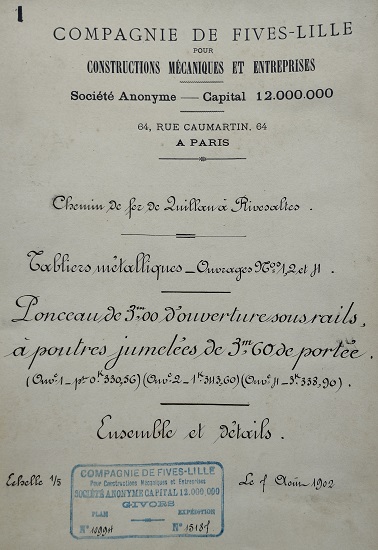 1
COMPAGNIE DE FIVES-LILLE
POUR
CONSTRUCTIONS MÉCANIQUES ET ENTREPRISES
Société Anonyme — Capital 12.000.000
64, RUE CAUMARTIN, 64
A PARIS
Chemin de fer de Quillan à Rivesaltes.
Tabliers métalliques _ Ouvrages Nos 1, 2 et 11.
Ponceau de 3m00 d'ouverture sous rails,
à poutres jumelées de 3m60 de portée.
(Ouv. 1 - pt 0k 330,56) (Ouv. 2 - 1k 3113,60) (Ouv. 11 - 3k 338,90).
Ensemble et détails.
Echelle 1/5
Le Août 1902
COMPAGNIE DE FIVES-LILLE
Pour Constructions Mécaniques et Entreprises
SOCIÉTÉ ANONYME CAPITAL 12.000,000
GIVORS
PLAN EXPÉDITION
N° N°